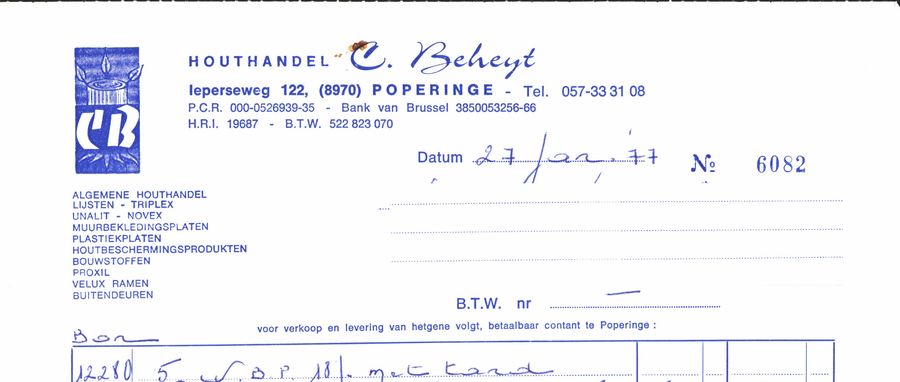 CB
HOUTHANDEL C. Beheyt
Ieperseweg 122, (8970) POPERINGE - Tel. 057-33 31 08
P.C.R. 000-0526939-35 - Bank van Brussel 3850053256-66
H.R.I. 19687 - B.T.W. 522 823 070
Datum 27 Jan. 77 № 6082
ALGEMENE HOUTHANDEL
LIJSTEN - TRIPLEX
UNALIT - NOVEX
MUURBEKLEDINGSPLATEN
PLASTIEKPLATEN
HOUTBESCHERMINGSPRODUKTEN
BOUWSTOFFEN
PROXIL
VELUX RAMEN
BUITENDEUREN
B.T.W. nr —
voor verkoop en levering van hetgene volgt, betaalbaar contant te Poperinge :
Bon
12280 5 W.B.P. 18 met